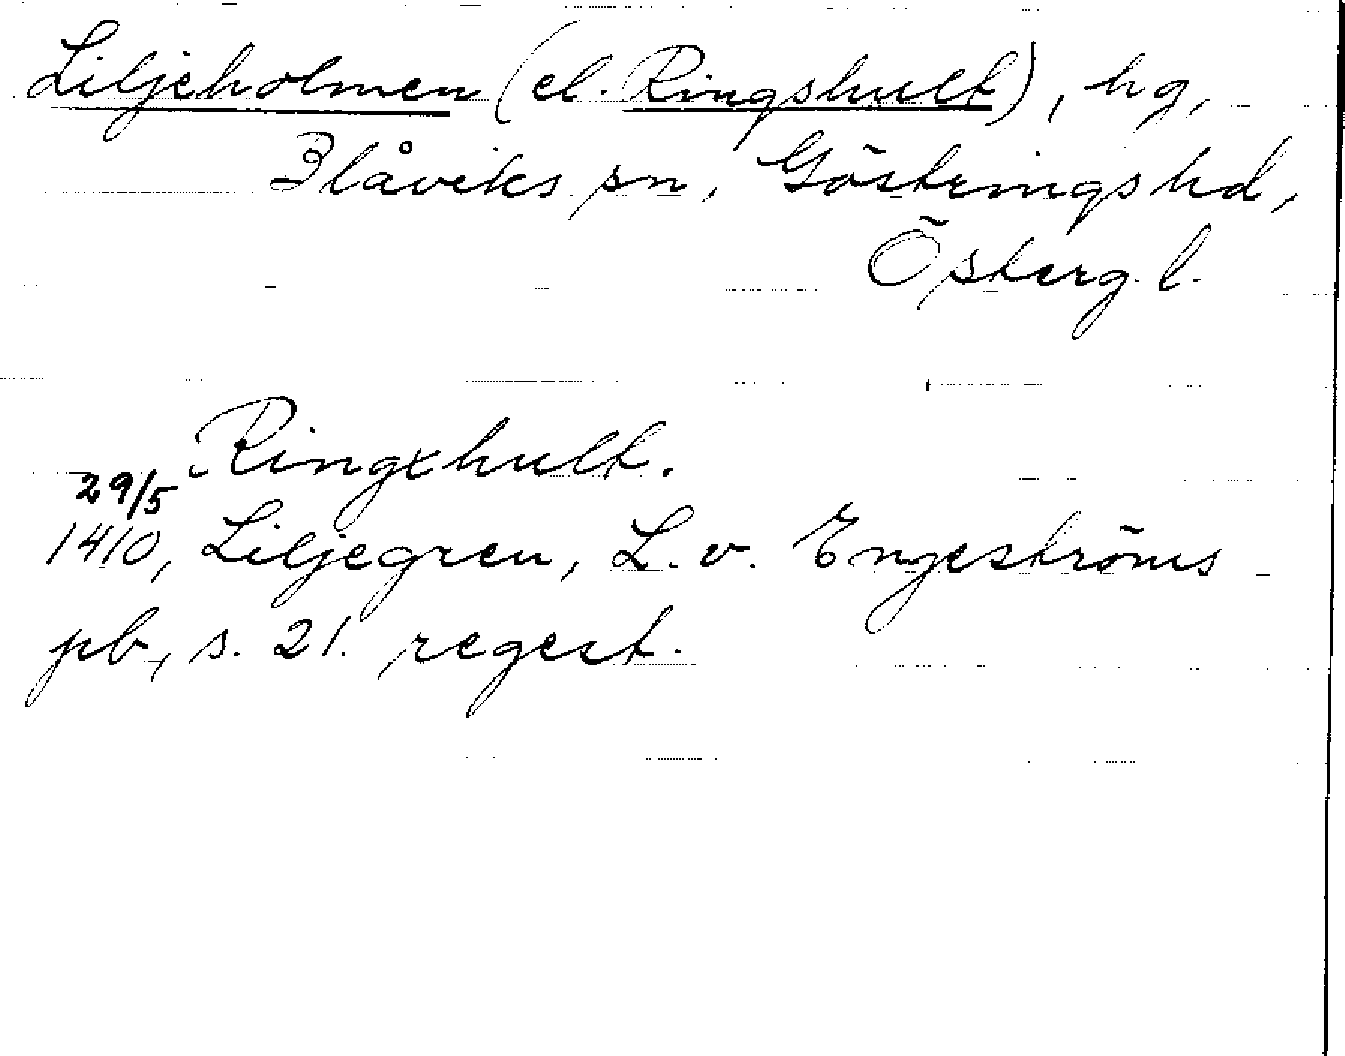 Liljeholmen (el. Ringshult), hg,
Blåviks sn, Göstrings hd,
Österg. l.
Ringxhult.
29/5
1410, Liljegren, L. v. Engeströms
pb, s. 21. regest.